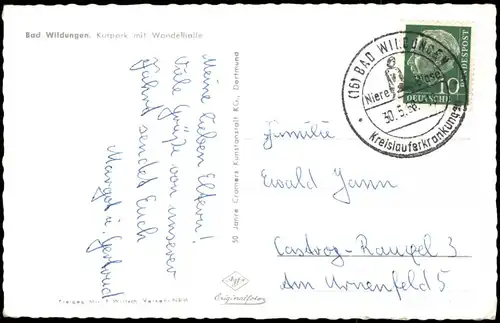 Bad Wildungen. Kurpark mit Wandelhalle
Meine lieben Eltern!
Viele Grüße von unserer
Fahrt sendet Euch
Margot u. Gertrud
50 Jahre Cramers Kunstanstalt KG., Dortmund
Agfa
Originalfoto
(16) BAD WILDUNGEN
Niere Blase
30.5.58
Kreislauferkrankungen
10
DEUTSCHE
BUNDESPOST
Familie
Ewald Jann
Castrop-Rauxel 3
Am Urnenfeld 5